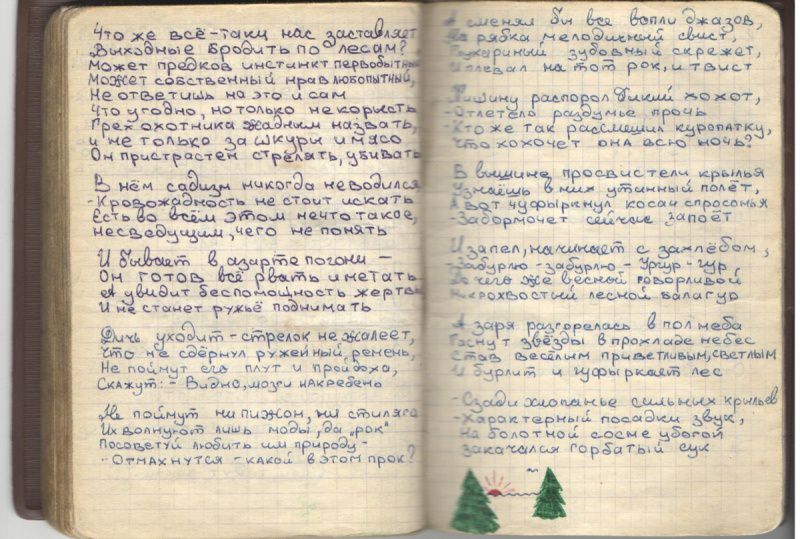 Что же всё-таки нас заставляет
Выходные бродить по лесам?
Может предков инстинкт первобытный
Может собственный нрав любопытный,
Не ответишь на это и сам
Что угодно, но только не корысть
Грех охотника жадным назвать,
и не только за шкуры и мясо
Он пристрастен стрелять, убивать
В нём садизм никогда не водился
- Кровожадность не стоит искать
Есть во всём этом нечто такое,
несведущим, чего не понять
И бывает в азарте погони -
Он готов всё рвать и метать
А увидит беспомощность жертвы
И не станет ружьё поднимать
Дичь уходит - стрелок не жалеет,
Что не сдёрнул ружейный ремень,
Не поймут его плут и пройдоха,
Скажут: - Видно, мозги набекрень
Не поймут ни пижон, ни стиляга
Их волнуют лишь моды, да "рок"
Посоветуй любить им природу -
- Отмахнутся - какой в этом прок?
А сменял бы все вопли джазов,
На рябка мелодичный свист,
Глухариный зубовный скрежет,
И плевал на тот рок, и твист
Тишину распорол дикий хохот,
- Отлетело раздумье прочь
- Кто же так рассмешил куропатку,
Что хохочет она всю ночь?
В вышине просвистели крылья
Узнаёшь в них утиный полёт,
А вот чуфыркнул косач спросонья
- Забормочет сейчас запоёт
И запел, начинает с захлёбом,
- Забурлю - забурлю - Ургур - гур,
До чего же весной говорливый
Чернохвостый лесной балагур
А заря разгорелась в пол неба
Гаснут звёзды в прохладе небес
Став весёлым приветливым, светлым
И бурлит и чуфыркает лес
- Сзади хлопанье сильных крыльев
- Характерный посадки звук,
На болотной сосне убогой
закачался горбатый сук